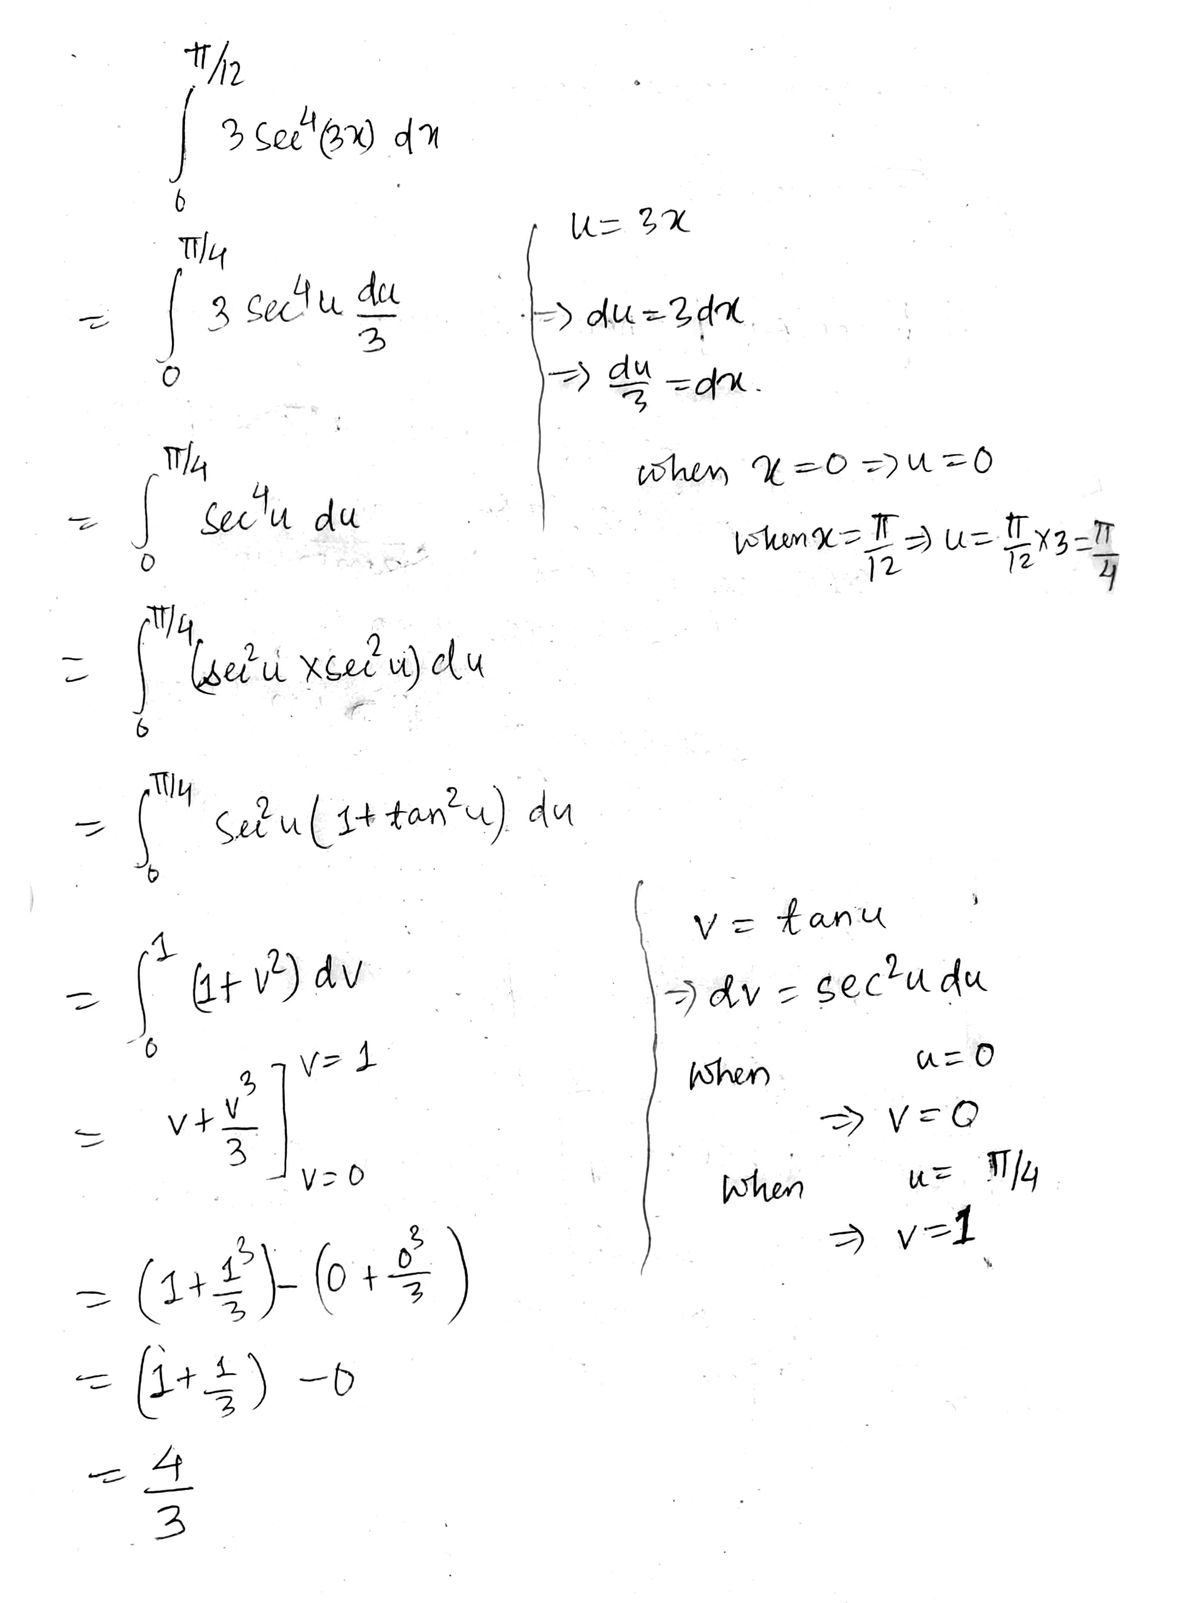 ∫₀^{π/12} 3 sec⁴(3x) dx
= ∫₀^{π/4} 3 sec⁴u du/3
u = 3x
⇒ du = 3dx
⇒ du/3 = dx.
when x = 0 ⇒ u = 0
when x = π/12 ⇒ u = π/12 × 3 = π/4
= ∫₀^{π/4} sec⁴u du
= ∫₀^{π/4} (sec²u × sec²u) du
= ∫₀^{π/4} sec²u (1 + tan²u) du
= ∫₀¹ (1 + v²) dv
v = tan u
⇒ dv = sec²u du
when u = 0
⇒ v = 0
when u = π/4
⇒ v = 1
= v + v³/3 ]_{v=0}^{v=1}
= (1 + 1³/3) - (0 + 0³/3)
= (1 + 1/3) - 0
= 4/3